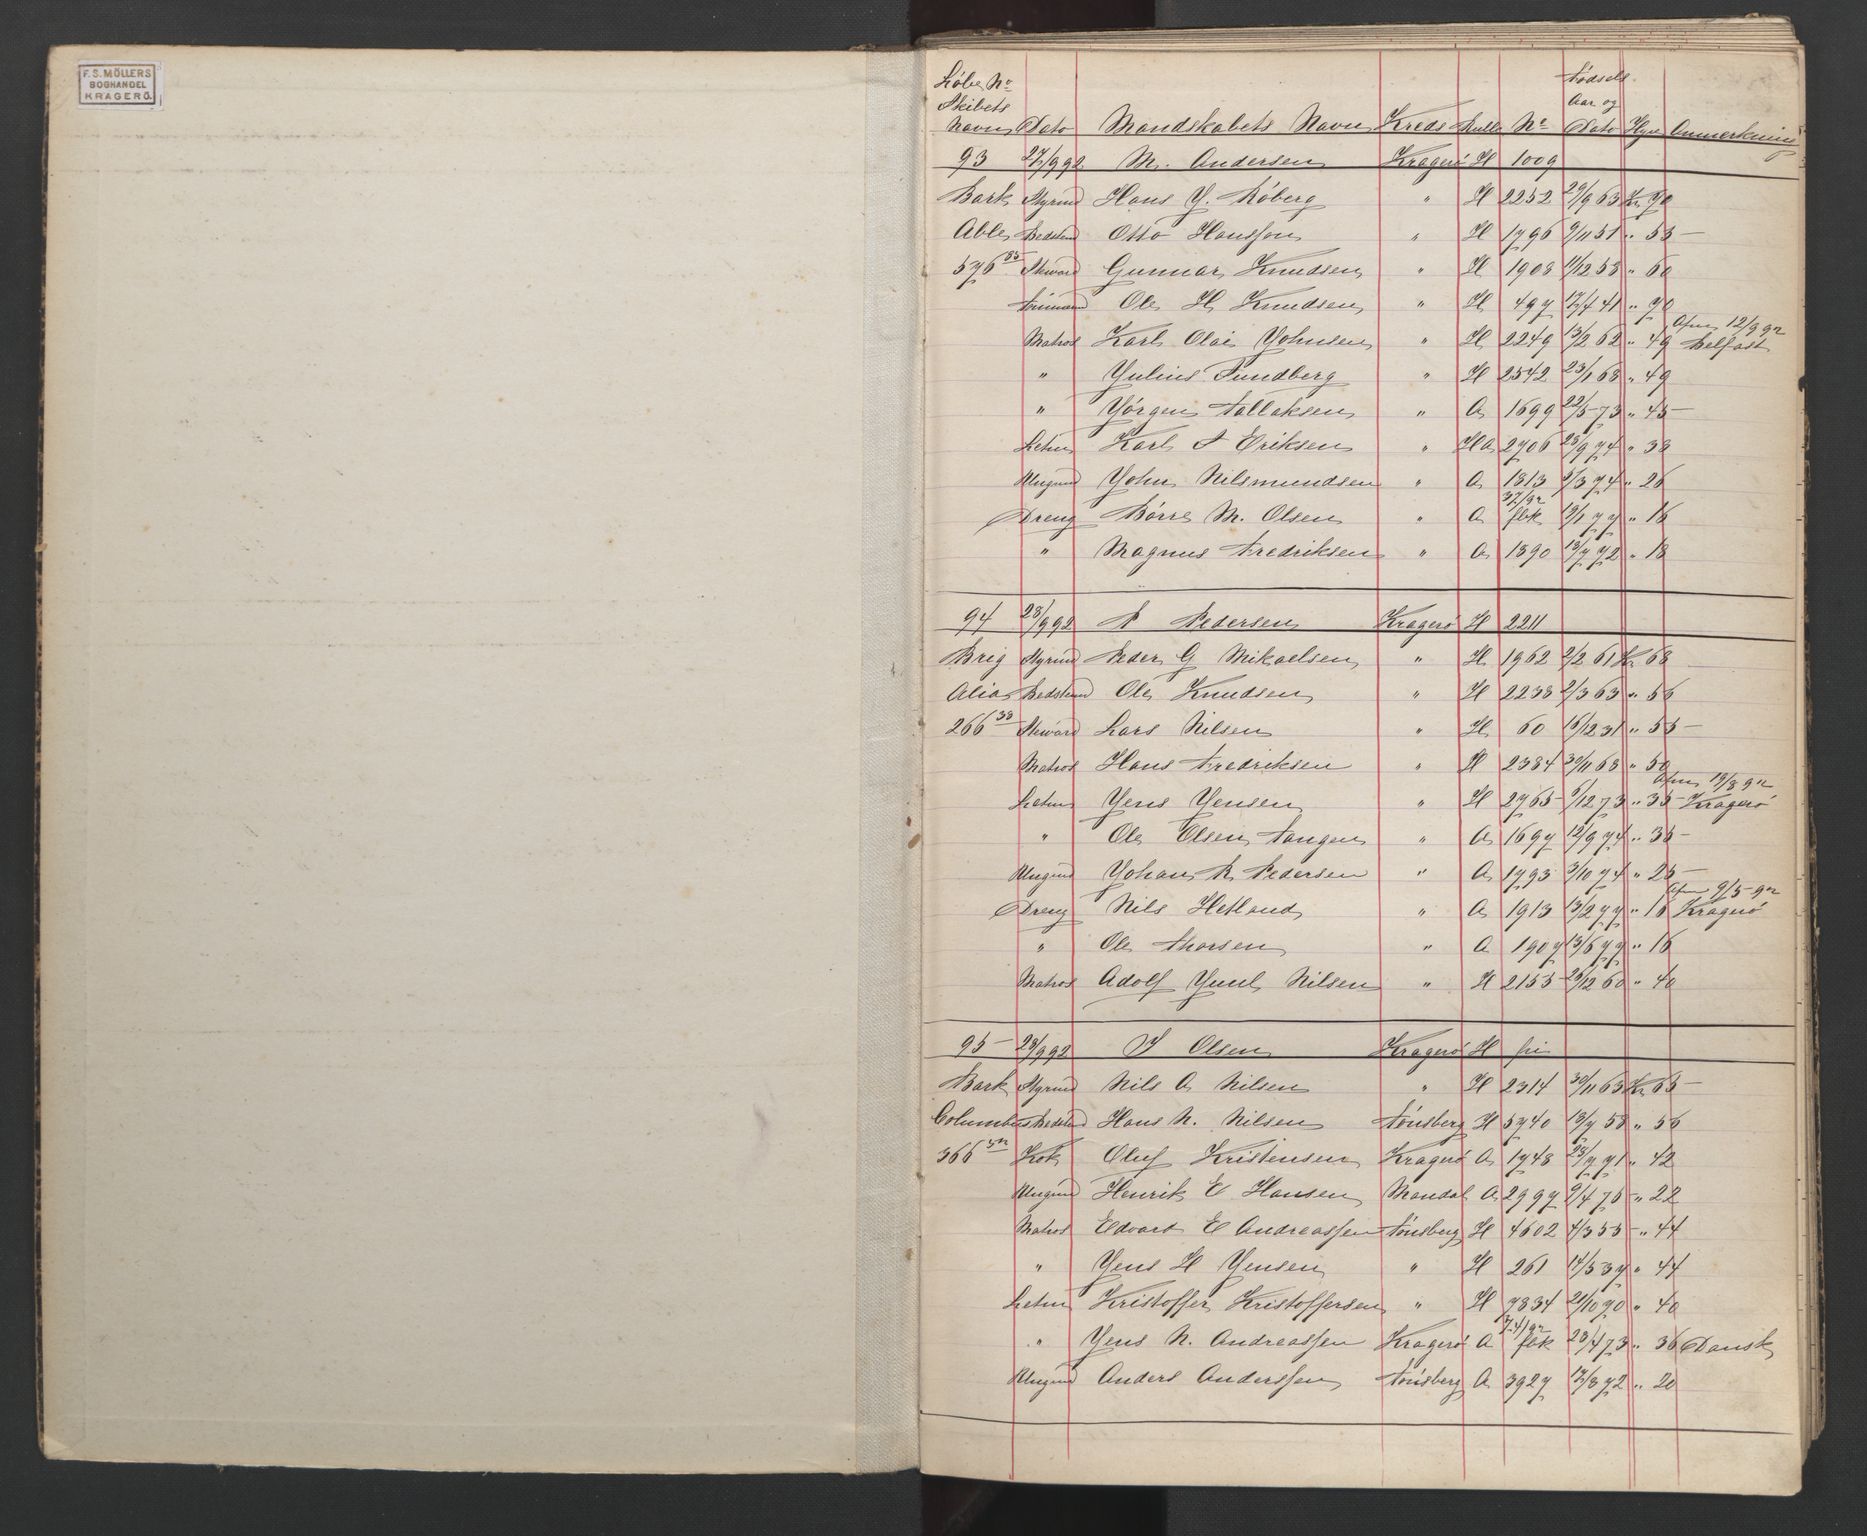 F.S. MÖLLERS
BOGHANDEL
KRAGERÖ.
Løbe No Fødsels
Skibets Aar og
Navn Dato Mandskabets Navn Kreds Rulle No Dato Hyre Anmerkning
93 27/9 92 M. Andersen Kragerø H 1009
Bark Styrmd Hans J. Røberg " H 2252 29/9 63 Kr. 70
Able Bedstmd Otto Hansson " H 1796 9/11 51 " 55
576 85 Steward Gunnar Knudsen " H 1908 11/12 58 " 60
Tømmmd Ole H Knudsen " H 497 17/4 41 " 70
Matros Karl Olai Johnsen " H 2249 13/2 62 " 49 Afm 12/9 92 Belfast
" Julius Sundberg " H 2542 23/1 68 " 49
" Jørgen Tallaksen " A 1699 22/5 73 " 45
Letm Karl A Eriksen " HA 2706 28/9 74 " 38
Ungmd John Nilsmundsen " A 1813 5/3 74 " 26
Dreng Børre M. Olsen " A 37/92 fbk 19/1 77 " 16
" Magnus Fredriksen " A 1890 13/7 72 " 18
94 28/9 92 A Pedersen Kragerø H 2211
Brig Styrmd Peder G Mikaelsen " H 1962 2/2 61 Kr 68
Alia Bedstmd Ole Knudsen " H 2238 2/3 63 " 56
266 33 Steward Lars Nilsen " H 60 16/12 31 " 55
Matros Hans Fredriksen " H 2384 30/11 68 " 50
Letm Jens Jensen " H 2765 6/12 73 " 35 Afm 19/8 92 Kragerø
" Ole Olsen Tangen " A 1697 12/9 74 " 35
Ungmd Johan R Pedersen " A 1793 3/10 74 " 25
Dreng Nils Hetland " A 1913 13/2 77 " 16 Afm 9/5 92 Kragerø
" Ole Thorsen " A 1907 13/6 77 " 16
Matros Adolf Juul Nilsen " H 2153 26/12 60 " 40
95 29/9 92 I Olsen Kragerø H fri
Bark Styrmd Nils A Nilsen " H 2314 30/11 63 Kr 65
Columbus Bedstmd Hans N. Nilsen Tønsberg H 5740 18/7 58 " 56
366 Kok Oluf Kristensen Kragerø A 1748 28/7 71 " 42
Ungmd Henrik E Hansen Mandal A 2997 9/4 75 " 22
Matros Edvard E Andreassen Tønsberg H 4602 4/3 55 " 44
" Jens H Jensen " H 261 14/5 37 " 44
Letm Kristoffer Kristoffersen " H 7834 21/10 70 " 40
" Jens N. Andreassen Kragerø A 74/92 fbk 28/4 73 " 36 Dansk
Ungmd Anders Anderssen Tønsberg A 3927 17/8 72 " 20